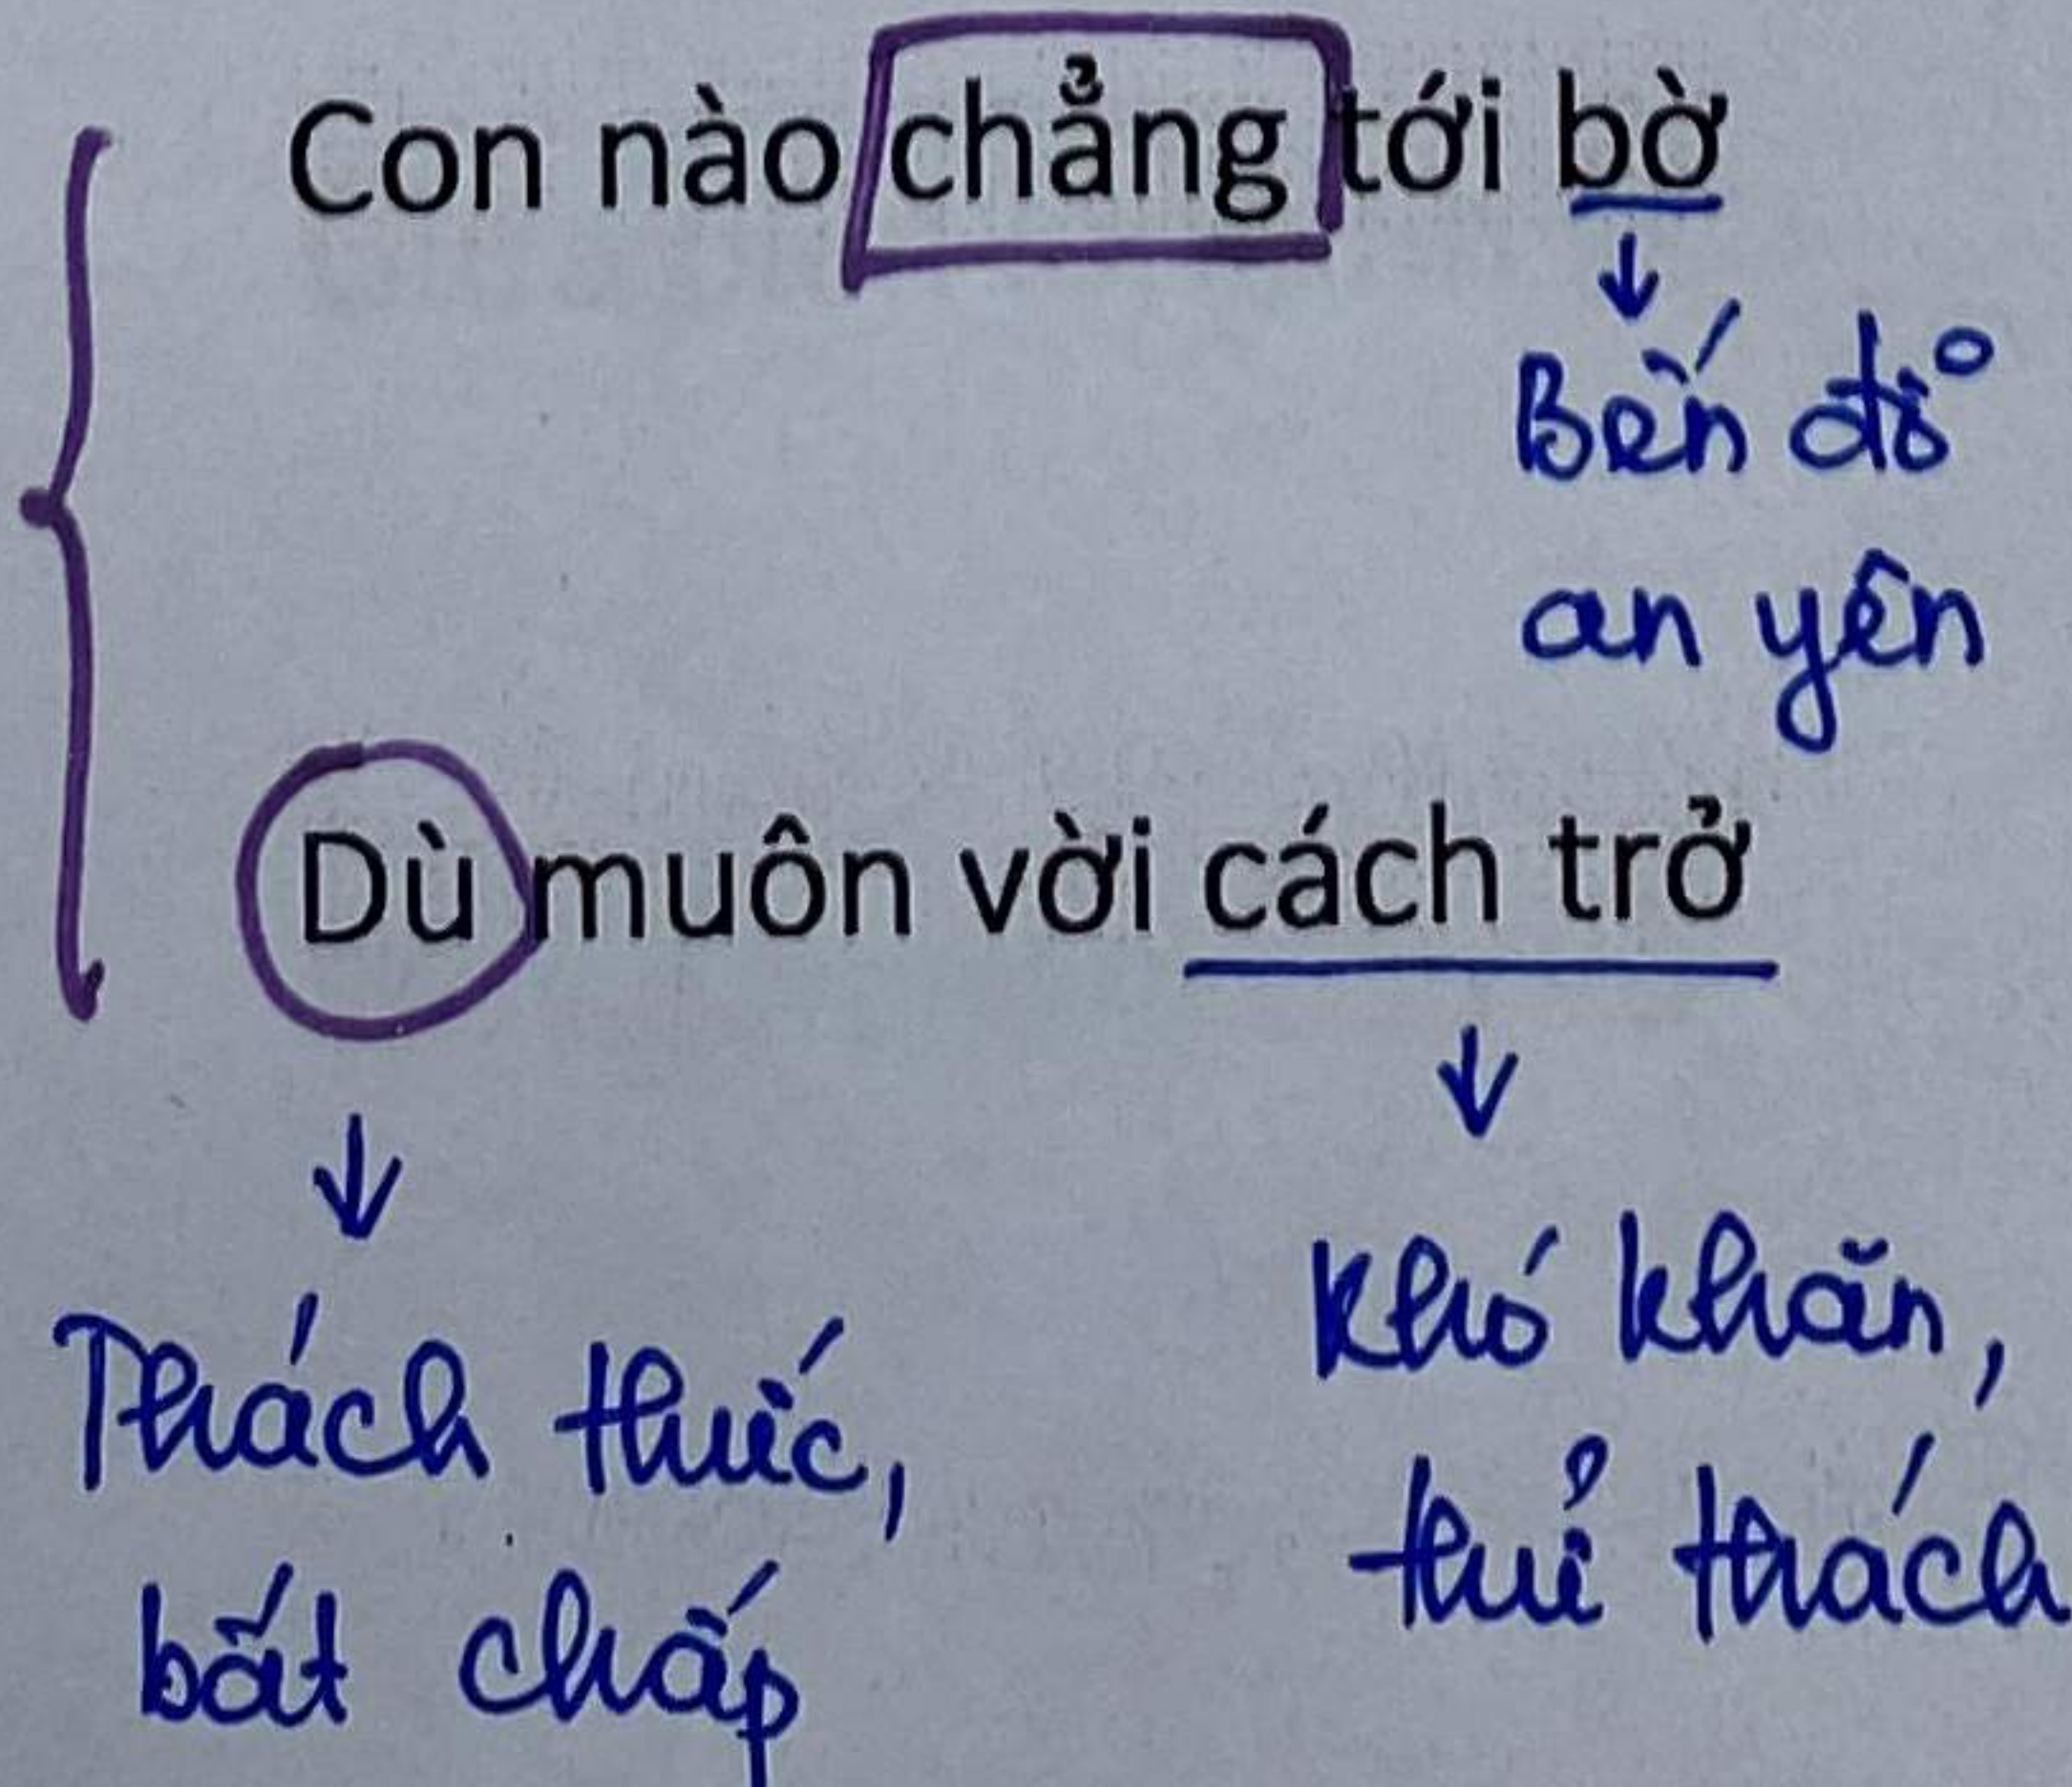 Con nào chẳng tới bờ
Bến đỗ
an yên
Dù muôn vời cách trở
Thách thức,
bất chấp
Khó khăn,
thử thách